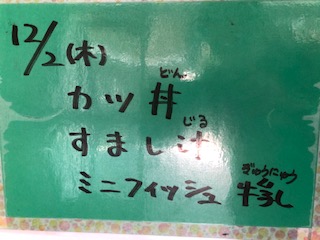 12/2(木)
カツ丼
どん
すまし汁
じる
ミニフィッシュ 牛乳
ぎゅうにゅう